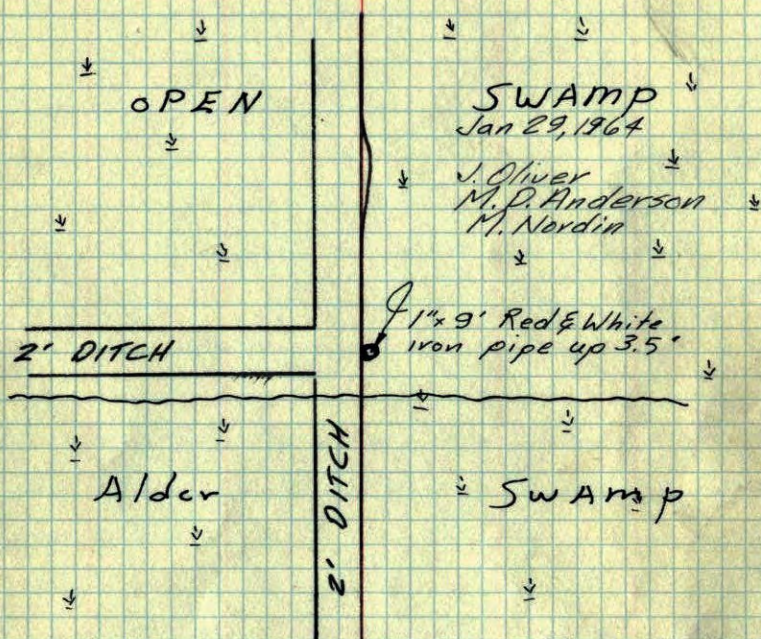 OPEN
SWAMP
Jan 29, 1964
J. Oliver
M. D. Anderson
M. Nordin
1"x 9' Red & White
iron pipe up 3.5'
2' DITCH
2' DITCH
Alder
Swamp